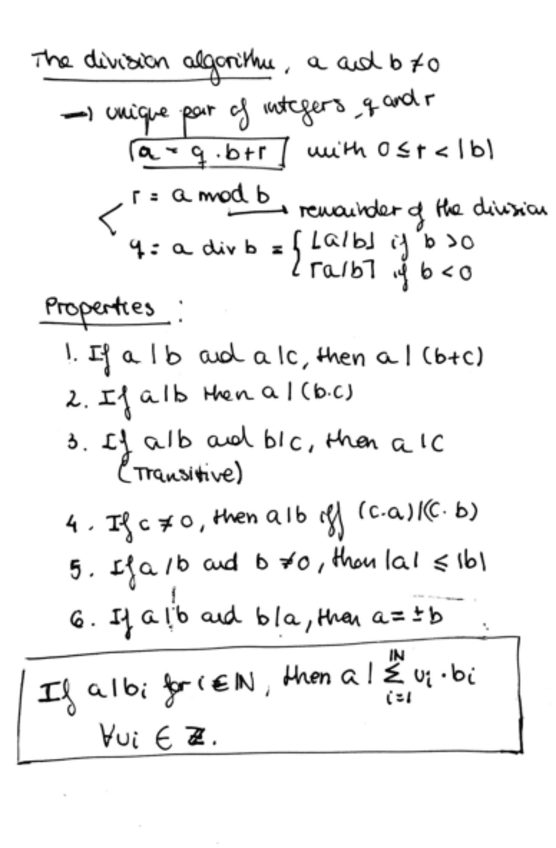 The division algorithm, a and b ≠ 0
→ unique pair of integers, q and r
a = q . b + r with 0 ≤ r < |b|
r = a mod b → remainder of the division
q = a div b = { ⌊a/b⌋ if b > 0
⌈a/b⌉ if b < 0
Properties :
1. If a | b and a | c, then a | (b+c)
2. If a | b then a | (b.c)
3. If a | b and b | c, then a | c
(Transitive)
4. If c ≠ 0, then a | b iff (c.a) | (c.b)
5. If a | b and b ≠ 0, then |a| ≤ |b|
6. If a | b and b | a, then a = ± b
If a | bi for i ∈ ℕ, then a | ∑_{i=1}^{ℕ} ui . bi
∀ui ∈ ℤ.